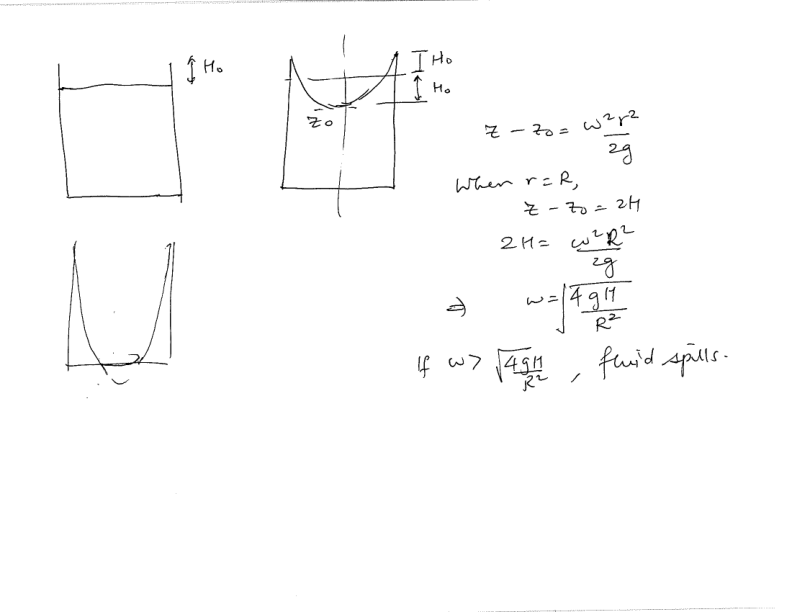 H₀
H₀
H₀
z₀
z - z₀ = ω²r²/2g
When r = R,
z - z₀ = 2H
2H = ω²R²/2g
⇒ ω = √(4gH/R²)
If ω > √(4gH/R²), fluid spills.